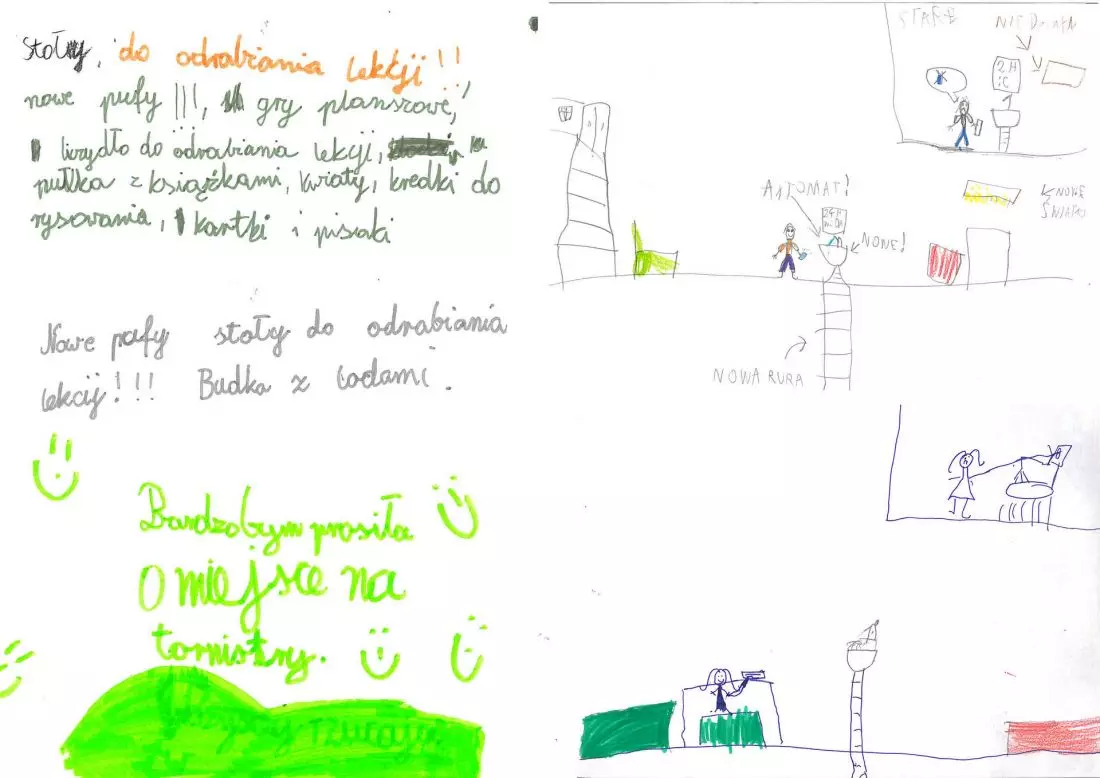 Stoły, do odrabiania lekcji!!
nowe pufy !!!, gry planszowe,
krzydło do odrabiania lekcji,
pułka z książkami, kwiaty, kredki do
rysowania, kartki i pisaki
Nowe pufy stoły do odrabiania
lekcij!!! Budka z lodami.
Bardzobym prosiła
O miejsce na
tornistry.
STARE
24H
AUTOMAT!
NONE!
NOWA RURA
NOWE
ŚWIATŁO